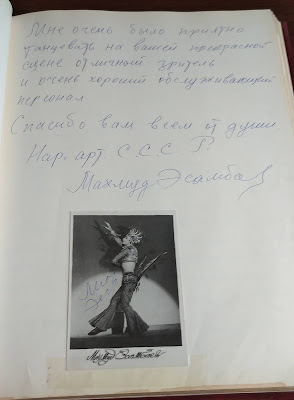 Мне очень было приятно
танцевать на вашей прекрасной
сцене отличный зритель
и очень хороший обслуживающий
персонал
Спасибо вам всем от души
Нар. арт. С.С.С Р.
Махмуд Эсамбаев
Махмуд Эсамбаев